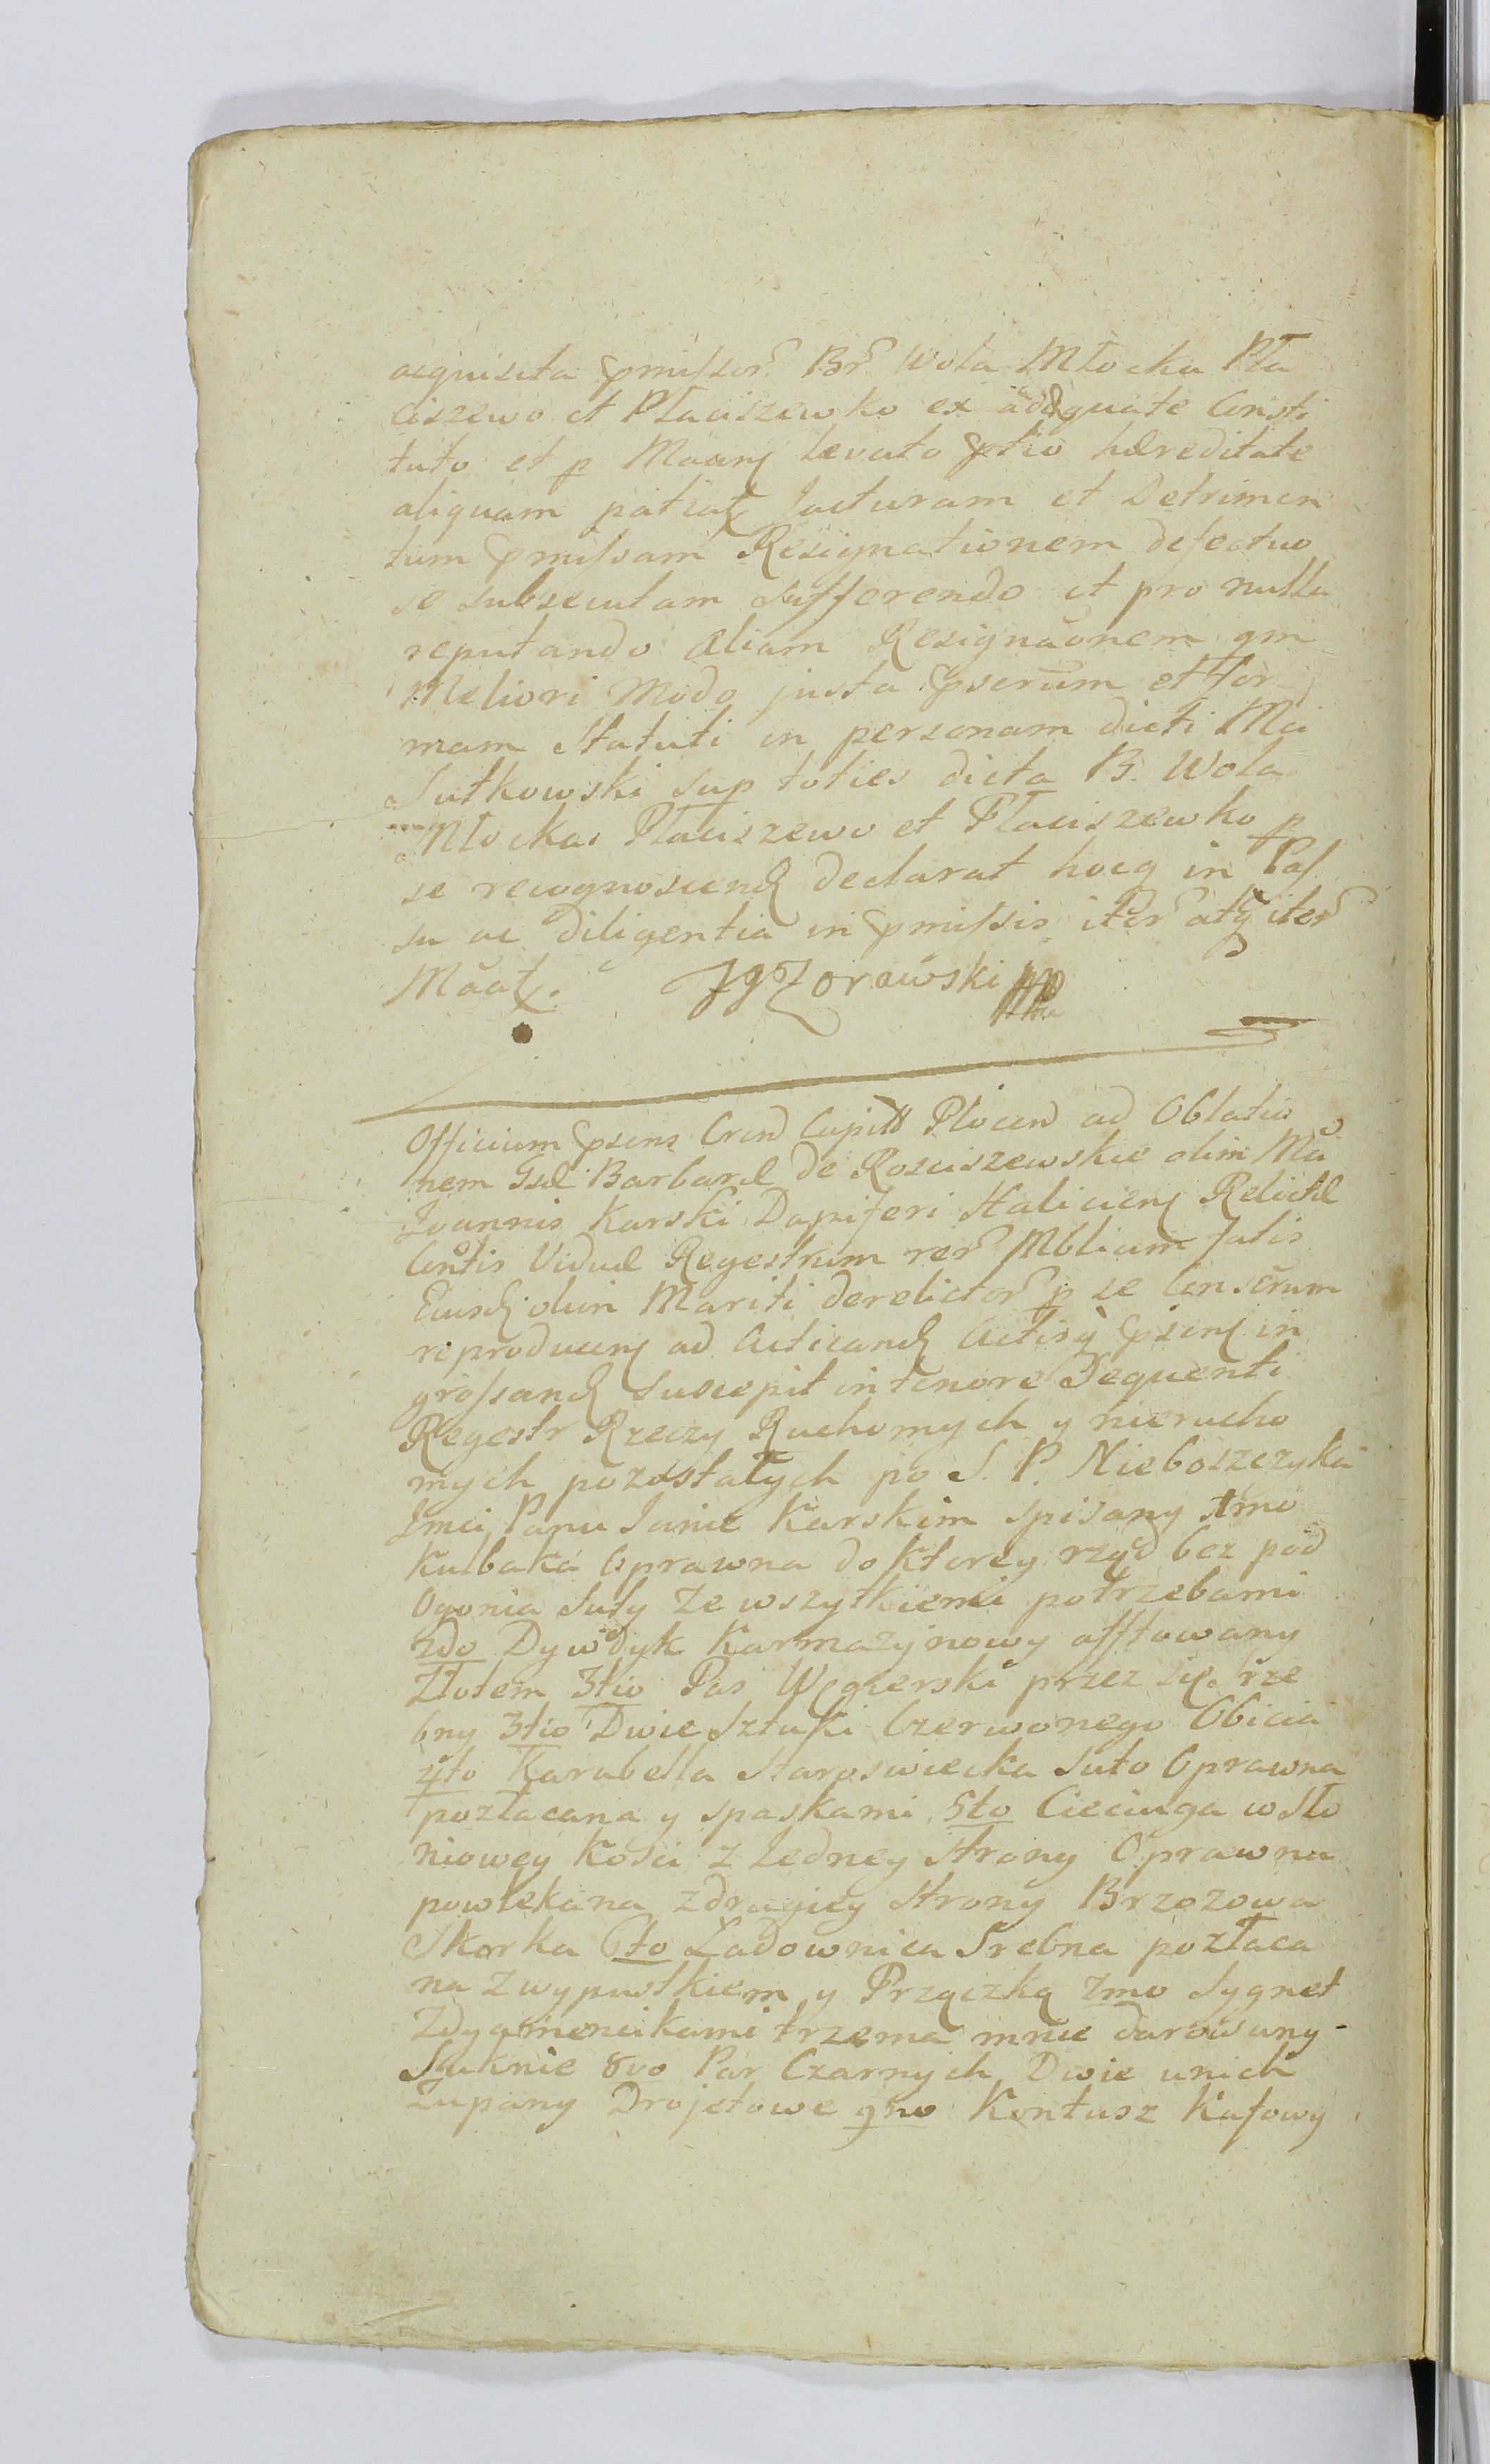 acquisita pmissor Br Wola Młocka Pła
ciszewo et Płaciszewko ex adæquate Consti
tuto et p Maanɉ levato ptio hæreditate
aliquam patiatɉ Jacturam et Detrimen
tum pmissam Resignationem defectuo
se subsecutam sufferendo et pro nulla
reputando aliam Resignaõnem qm
Meliori modo justa pscrūm et for
mam Statuti in personam dicti Mći
Sutkowski sup toties dicta B. Wola
Młocka Płaciszewo et Płaciszewko p
se recognoscend declarat hocq in Pas
su ac diligentia in pmissis iter atq iter
Mãatɉ. JgZorawski
Officium psens Cren Capitt Płocen ad Oblatio
nem Gsæ Barbaræ de Rosciszewskie olim Mći
Joannis Karski Dapiferi Halicienɉ Relictæ
Contis Viduæ Regestrum rer Mblium fatis
Eiusdɉ olim Mariti derelictor p se Conscrum
reproducenɉ ad Acticandɉ Actisq psenɉ in
grossandɉ suscepit in tenore Sequenti
Regestr Rzeczy Ruchomych y nierucho
mych pozostałych po S. P. Nieboszczyka
Jmci Panu Janie Karskim spisany 1mo
Kulbaka Oprawna do ktorey rząd bez pod
Ogonia suty ze wszytkiemi potrzebami
2do Dywdyk Karmazynowy afftowany
Złotem 3tio Pas Węgierski przez się srze
bny 3tio Dwie Sztuki Czerwonego Obicia
4to Karabella Staroswiecka Suto Oprawna
pozłacana y spaskami 5to Cieciuga w sło
niowey Kosci z Jedney strony Oprawna
powlekana zdrugiey strony Brzozowa
Skorka 6to Ładownica Srebna pozłaca
na z wypustkiem y Przączką 7mo Sygnet
Zdyamencikami trzema mnie darowany-
Suknie 8vo Par Czarnych Dwie unich
Zupany Drojetowe 9no Kontusz Kafowy